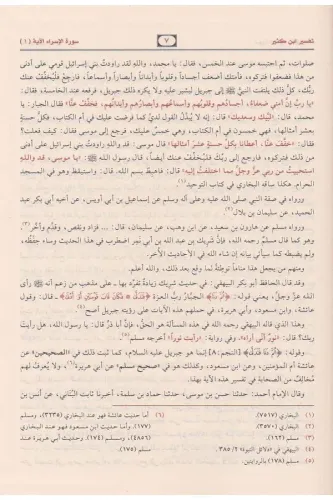 تفسير ابن كثير ٧ سورة الإسراء الآية (١)
صلوات، ثم احتبسه موسى عند الخمس، فقال: يا محمد، والله لقد راودتُ بني إسرائيل قومي على أدنى
من هذا فضعفوا فتركوه، فأمتك أضعف أجساداً وقلوباً وأبداناً وأبصاراً وأسماعاً، فارجع فليخفف عنك
ربك، كلَّ ذلك يلتفت النبيُّ ﷺ إلى جبريل ليشير عليه ولا يكره ذلك جبريل، فرفعه عند الخامسة، فقال:
«يا ربِّ إنَّ أمتي ضعفاءُ، أجسادهم وقلوبهم وأسماعهم وأبصارهم وأبدانهم، فخفِّف عنّا» فقال الجبار: يا
محمد، قال: «لبيك وسعديك» قال: إنه لا يُبدَّل القول لديَّ كما فرضت عليك في أم الكتاب، فكل حسنةٍ
بعشر أمثالها، فهي خمسون في أم الكتاب، وهي خمسٌ عليك، فرجع إلى موسى فقال: كيف فعلت؟
فقال: «خفَّف عنّا، أعطانا بكلِّ حسنةٍ عشرَ أمثالها» قال موسى: قد والله راودتُ بني إسرائيل على أدنى
من ذلك فتركوه، فارجع إلى ربك فليُخفِّف عنك أيضاً، قال رسول الله ﷺ: «يا موسى، قد والله
استحييتُ من ربي عزَّ وجلَّ مما اختلفتُ إليه» قال: فاهبط بسم الله. قال: واستيقظ وهو في المسجد
الحرام. هكذا ساقه البخاري في كتاب التوحيد(١)
ورواه في صفة النبي صلى الله عليه وعلى آله وسلم عن إسماعيل بن أبي أويس، عن أخيه أبي بكر عبد
الحميد، عن سليمان بن بلال(٢)
ورواه مسلم عن هارون بن سعيد، عن ابن وهب، عن سليمان، قال: ... فزاد ونقص، وقدَّم وأخَّر(٣)
وهو كما قال مسلم رحمه الله، فإن شريك بن عبد الله بن أبي نمر اضطرب في هذا الحديث وساء حفظُه،
ولم يضبطه كما سيأتي بيانه إن شاء الله في الأحاديث الأُخر.
ومنهم من يجعل هذا مناماً توطئةً لما وقع بعد ذلك، والله أعلم.
وقد قال الحافظ أبو بكر البيهقي: في حديث شريكٍ زيادةٌ تفرَّد بها ـ على مذهب من زعم أنه ﷺ رأى
اللهَ عزَّ وجلَّ، يعني قوله: ثم دنا الجبّارُ ربُّ العزة ﴿فَتَدَلَّى فَكَانَ قَابَ قَوْسَيْنِ أَوْ أَدْنَى﴾ ـ قال: وقول
عائشة، وابن مسعود، وأبي هريرة، في حملهم هذه الآيات على رؤيته جبريل أصح(٤)
وهذا الذي قاله البيهقي رحمه الله في هذه المسألة هو الحقُّ، فإنَّ أبا ذرٍّ قال: يا رسول الله، هل رأيتَ
ربك؟ قال: «نورٌ أنَّى أراه»، وفي رواية: «رأيتُ نوراً» أخرجه مسلم(٥)
وقوله: ﴿ثُمَّ دَنَا فَتَدَلَّى﴾ [النجم: ٨] إنما هو جبريل عليه السلام، كما ثبت ذلك في «الصحيحين» عن
عائشة أم المؤمنين، وعن ابن مسعود، وكذلك هو في صحيح مسلم عن أبي هريرة(٦)، ولا يُعرَف لهم
مخالفٌ من الصحابة في تفسير هذه الآية بهذا.
وقال الإمام أحمد: حدثنا حسن بن موسى، حدثنا حماد بن سلمة، أخبرنا ثابت البُناني، عن أنس بن
(١) البخاري (٧٥١٧).
(٢) البخاري (٣٥٧٠).
(٣) مسلم (١٦٢).
(٤) البيهقي في «دلائل النبوة» ٢/ ٣٨٥.
(٥) مسلم (١٧٨) بالروايتين.
(٦) أما حديث عائشة فهو عند البخاري (٣٢٣٥)، ومسلم
(١٧٧)، وأما حديث ابن مسعود فهو عند البخاري
(٤٨٥٦)، ومسلم (١٧٤). وحديث أبي هريرة عند
مسلم (١٧٥).